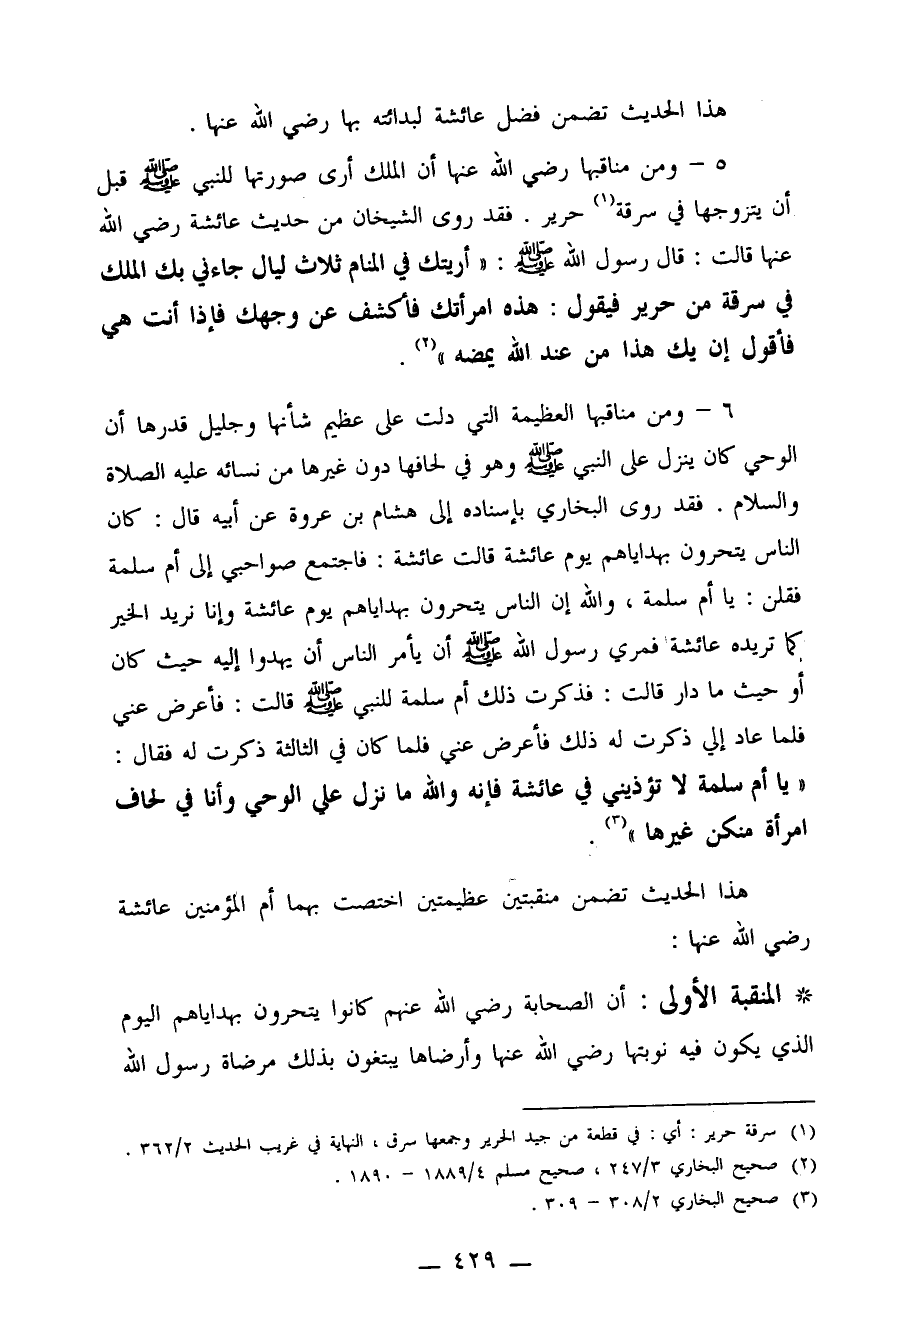 هذا الحديث تضمن فضل عائشة لبدائته بها رضي الله عنها .
٥ – ومن مناقبها رضي الله عنها أن الملك أرى صورتها للنبي ﷺ قبل
أن يتزوجها في سرقة(١) حرير . فقد روى الشيخان من حديث عائشة رضي الله
عنها قالت : قال رسول الله ﷺ : « أريتك في المنام ثلاث ليال جاءني بك الملك
في سرقة من حرير فيقول : هذه امرأتك فأكشف عن وجهك فإذا أنت هي
فأقول إن يك هذا من عند الله يمضه »(٢) .
٦ – ومن مناقبها العظيمة التي دلت على عظيم شأنها وجليل قدرها أن
الوحي كان ينزل على النبي ﷺ وهو في لحافها دون غيرها من نسائه عليه الصلاة
والسلام . فقد روى البخاري بإسناده إلى هشام بن عروة عن أبيه قال : كان
الناس يتحرون بهداياهم يوم عائشة قالت عائشة : فاجتمع صواحبي إلى أم سلمة
فقلن : يا أم سلمة ، والله إن الناس يتحرون بهداياهم يوم عائشة وإنا نريد الخير
كما تريده عائشة فمري رسول الله ﷺ أن يأمر الناس أن يهدوا إليه حيث كان
أو حيث ما دار قالت : فذكرت ذلك أم سلمة للنبي ﷺ قالت : فأعرض عني
فلما عاد إلي ذكرت له ذلك فأعرض عني فلما كان في الثالثة ذكرت له فقال :
« يا أم سلمة لا تؤذيني في عائشة فإنه والله ما نزل علي الوحي وأنا في لحاف
امرأة منكن غيرها »(٣) .
هذا الحديث تضمن منقبتين عظيمتين اختصت بهما أم المؤمنين عائشة
رضي الله عنها :
* المنقبة الأولى : أن الصحابة رضي الله عنهم كانوا يتحرون بهداياهم اليوم
الذي يكون فيه نوبتها رضي الله عنها وأرضاها يبتغون بذلك مرضاة رسول الله
(١) سرقة حرير : أي : في قطعة من جيد الحرير وجمعها سرق ، النهاية في غريب الحديث ٣٦٢/٢ .
(٢) صحيح البخاري ٢٤٧/٣ ، صحيح مسلم ١٨٨٩/٤ – ١٨٩٠ .
(٣) صحيح البخاري ٣٠٨/٢ – ٣٠٩ .
— ٤٢٩ —